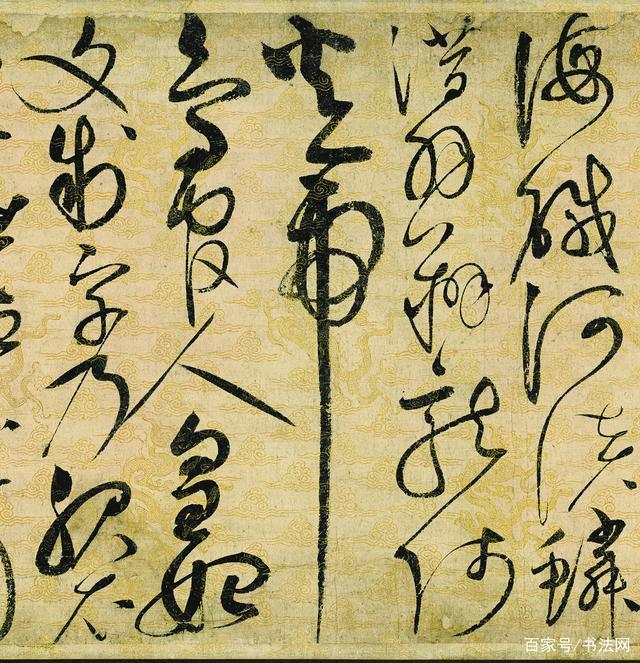 海鹹河淡鱗
潛羽翔龍師
火帝
鳥官人皇始
文制字乃服衣
百家号/书法网